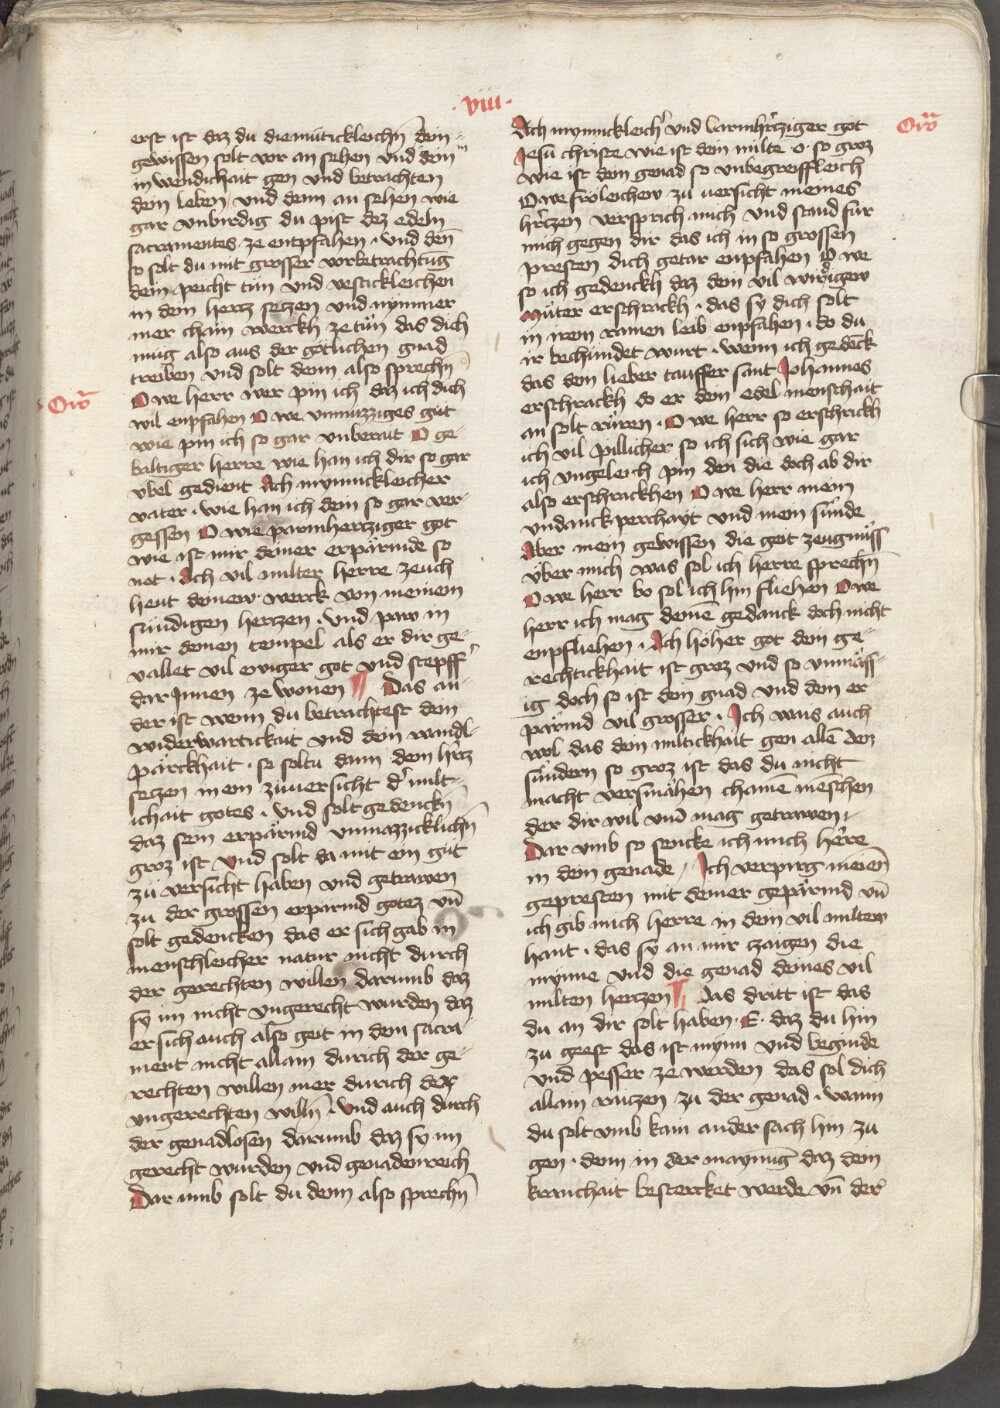 · viii ·
erst ist daz du diemütickleichn̄ dein
gewissen solt vor an sehen und dein
inwendichait gen und betrachten
dein leben und denn an sehen wie
gar unbirdig du pist dez edeln
sacramentes ze entpfahen · und den̄
so solt du mit grosser vorbetrachtūg
dein peicht tün und vestickleichen
in dem hertz setzen und nymmer
mer chain werckh ze tün das dich
müg also aus der götlichen gnad
treiben und solt denn also sprechn̄
Orō
O we herr wer pin ich daz ich dich
wil enpfahen O we unnuczziges güt
wie pin ich so gar unberait O ge-
baltiger herre wie han ich dir so gar
vbel gedient Ach mynnickleicher
vater · wie han ich dein so gar ver-
gessen O wie parmhertziger got
wie ist mir deiner erpärmde so
not · Ach vil milter herre zeuch
heut deinew werck von meinem
sündigen hertzen · und paw in
mir deinen tempel als er dir ge-
vallet vil ewiger got und stepff
dar Innen ze wonen ¶ Das an-
der ist wenn du betrachtest dein
widerwärtickait und dein wandl-
pärckhait · so soltu dann dem hr̄cz
seczen in ein züversicht d' milt-
ichait gotes · Und solt gedenckn̄
daz sein erpärmd unmazzicklichn̄
groz ist Und solt da mit ein güt
zü versicht haben und getrawen
zü der grossen erparmd gotez un̄
solt gedencken das er sich gab in
menschleicher natur nicht durch
der gerechten willen darumb daz
sy im nicht ungerecht wurden daz
er sich auch also geit in dem sacra-
ment nicht allain durich der ge-
rechten willen mer durich der
ungerechten willn̄ · Und auch durch
der genadlosen darumb daz sy im
gerecht wurden und genadenreich
Dar umb solt du denn also sprechn̄
Orō
Ach mynnickleich' und barmhr̄cziger got
Jesu christe wie ist dein milte · o · so groz
wie ist dein genad so unbegreiffleich
O we frölichew zü uersicht meines
hr̄czen versprich mich und stand für
mich gegen dir das ich in so grossen
presten dich getar enpfahen O we
so ich gedenckh daz dein vil wirdigew
Müter erschrackh · das sy dich solt
in irem rainen leib enpfahen · do du
ir bechündet wurt · wenn ich gedēck
das dein lieber tauffer sant Johannes
erschrackh do er dein edel menschait
an solt rüren · O we herr so erschrickh
ich vil pillicher so ich sich wie gar
ich ungeleich pin den die doch ab dir
also erschrackhen O we herr mein
undanckperchayt und mein sünde
Aber mein gewissen die geit zeugnüss
über mich was sol ich herre sprechn̄
O we herr bo sol ich hin fliehen O we
herr ich mag deinē gedanck doch nicht
enpfliehen · Ach höher got dein ge-
rechtickhait ist groz und so unmäss-
ig doch so ist dein gnad und dein er-
pärmd vil grosser · Ich wais auch
wol das dein miltickhait gen allē den
sündern so groz ist das du nicht
macht versmähen chainē mēschen
der dir wil un̄ mag getrawen ·
Dar umb so sencke ich mich hērre
in dein genade / Ich verpirg meinē
gepresten mit deiner gepärmd un̄
ich gib mich herre in dein vil milten
hant · das sy an mir tzaigen die
mynne und die genad deines vil
milten hertzen ¶ Das dritt ist das
du an dir solt haben · E · daz du hin
zü geest das ist mynn und beginde
und pesser ze werden das sol dich
allain raiczen zu der genad · wann
du solt umb kain ander sach hin zü
gen · denn in der maynūg daz dein
kranchait bestercket werde un̄ der